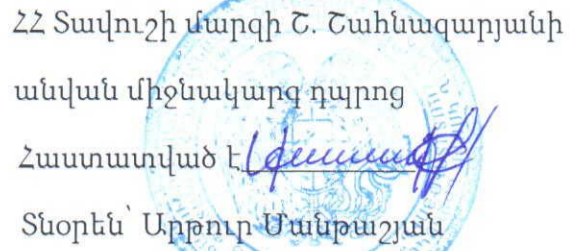 ՀՀ Տավուշի մարզի Շ. Շահնազարյանի
անվան միջնակարգ դպրոց
Հաստատված է
Տնօրեն՝ Արթուր Մանթաշյան